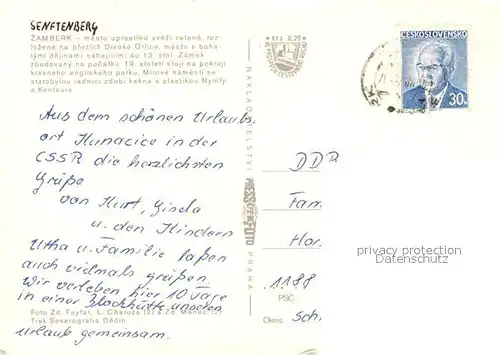 SENFTENBERG
ŽAMBERK – město uprostřed svěží zeleně, roz-
ložené na březích Divoké Orlice, město s boha-
tými dějinami sahajícími do 13. stol. Zámek
zbudovaný na počátku 19. století stojí na pokraji
krásného anglického parku. Mírové náměstí se
starobylou radnicí zdobí kašna s plastikou Nymfy
a Kentaura
Kčs 0,20
ČESKOSLOVENSKO
30h
Aus dem schönen Urlaubs-
ort Kunacice in der
CSSR die herzlichsten
Grüße
von Kurt, Gisela
u. den Kindern
Utha u. Familie laßen
auch vielmals grüßen
Wir verleben hier 10 Tage
in einer Blockhütte unseren
Urlaub gemeinsam.
NAKLADATELSTVÍ
PRESSFOTO
PRAHA
DDR
Fam.
Hor
1188
PSČ
Okres: Sch
privacy protection
Datenschutz
Foto Zd. Feyfar, L. Charuza (2) a Zd. Menec (2)
Tisk Severografia Děčín